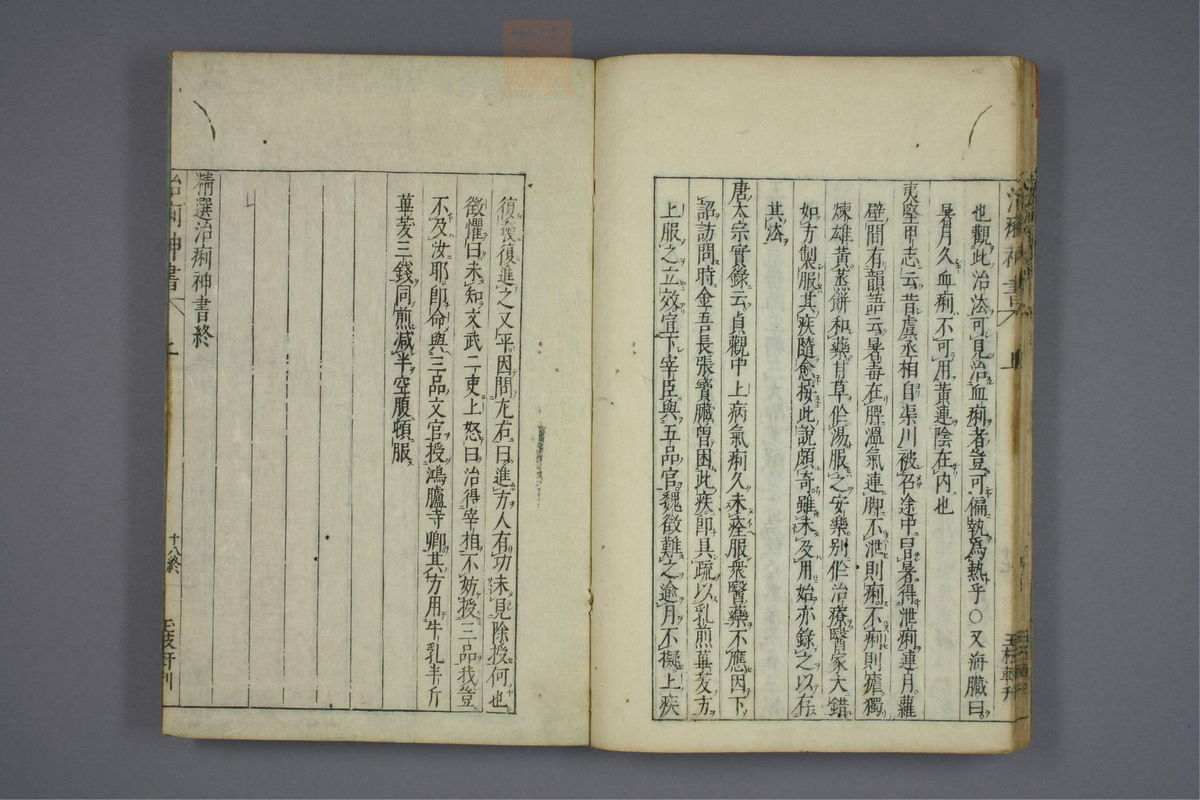 也觀此治法可見治血痢者豈可偏執爲熱乎○又海臟曰
暑月久血痢不可用黃連陰在内也
夷堅甲志云昔虞丞相自渠川被召途中冒暑得泄痢連月蘿
壁間有韻語云暑毒在脾溫氣連脚不泄則痢不痢則瘧獨
煉雄黃蒸餅和藥甘草作湯服之安樂别作治療醫家大錯
如方製服其疾隨愈按此說頗奇雖未及用始亦錄之以存
其法
唐太宗實錄云貞觀中上病氣痢久未痊服衆醫藥不應因下
詔訪問時金吾長張寳臟曽困此疾即具疏以乳煎蓽茇方
上服之立效宣下宰臣與五品官魏徵難之逾月不擬上疾
復發復進之又平因問左右曰進方人有功未見除授何也
徵懼曰未知文武二吏上怒曰治得宰相不妨授三品我豈
不及汝耶即命與三品文官授鴻臚寺卿其方用牛乳半斤
蓽茇三錢同煎减半空腹頓服
精選治痢神書終
治痢神書
十八終